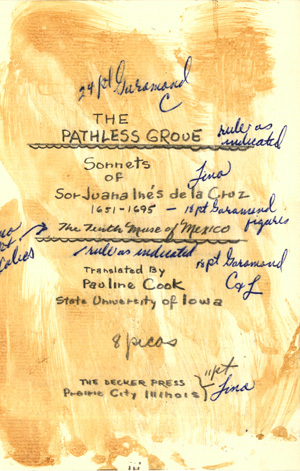 24 pt Garamond
C
THE
PATHLESS GROVE
rule as
indicated
Sonnets
of
Lino
Sor Juana Inés de la Cruz
1651-1695 – 18 pt Garamond
figures
The Tenth Muse of Mexico
rule as indicated
Translated By
18 pt Garamond
Pauline Cook
C & L
State University of Iowa
8 picas
THE DECKER PRESS
Prairie City Illinois
pt
Lino